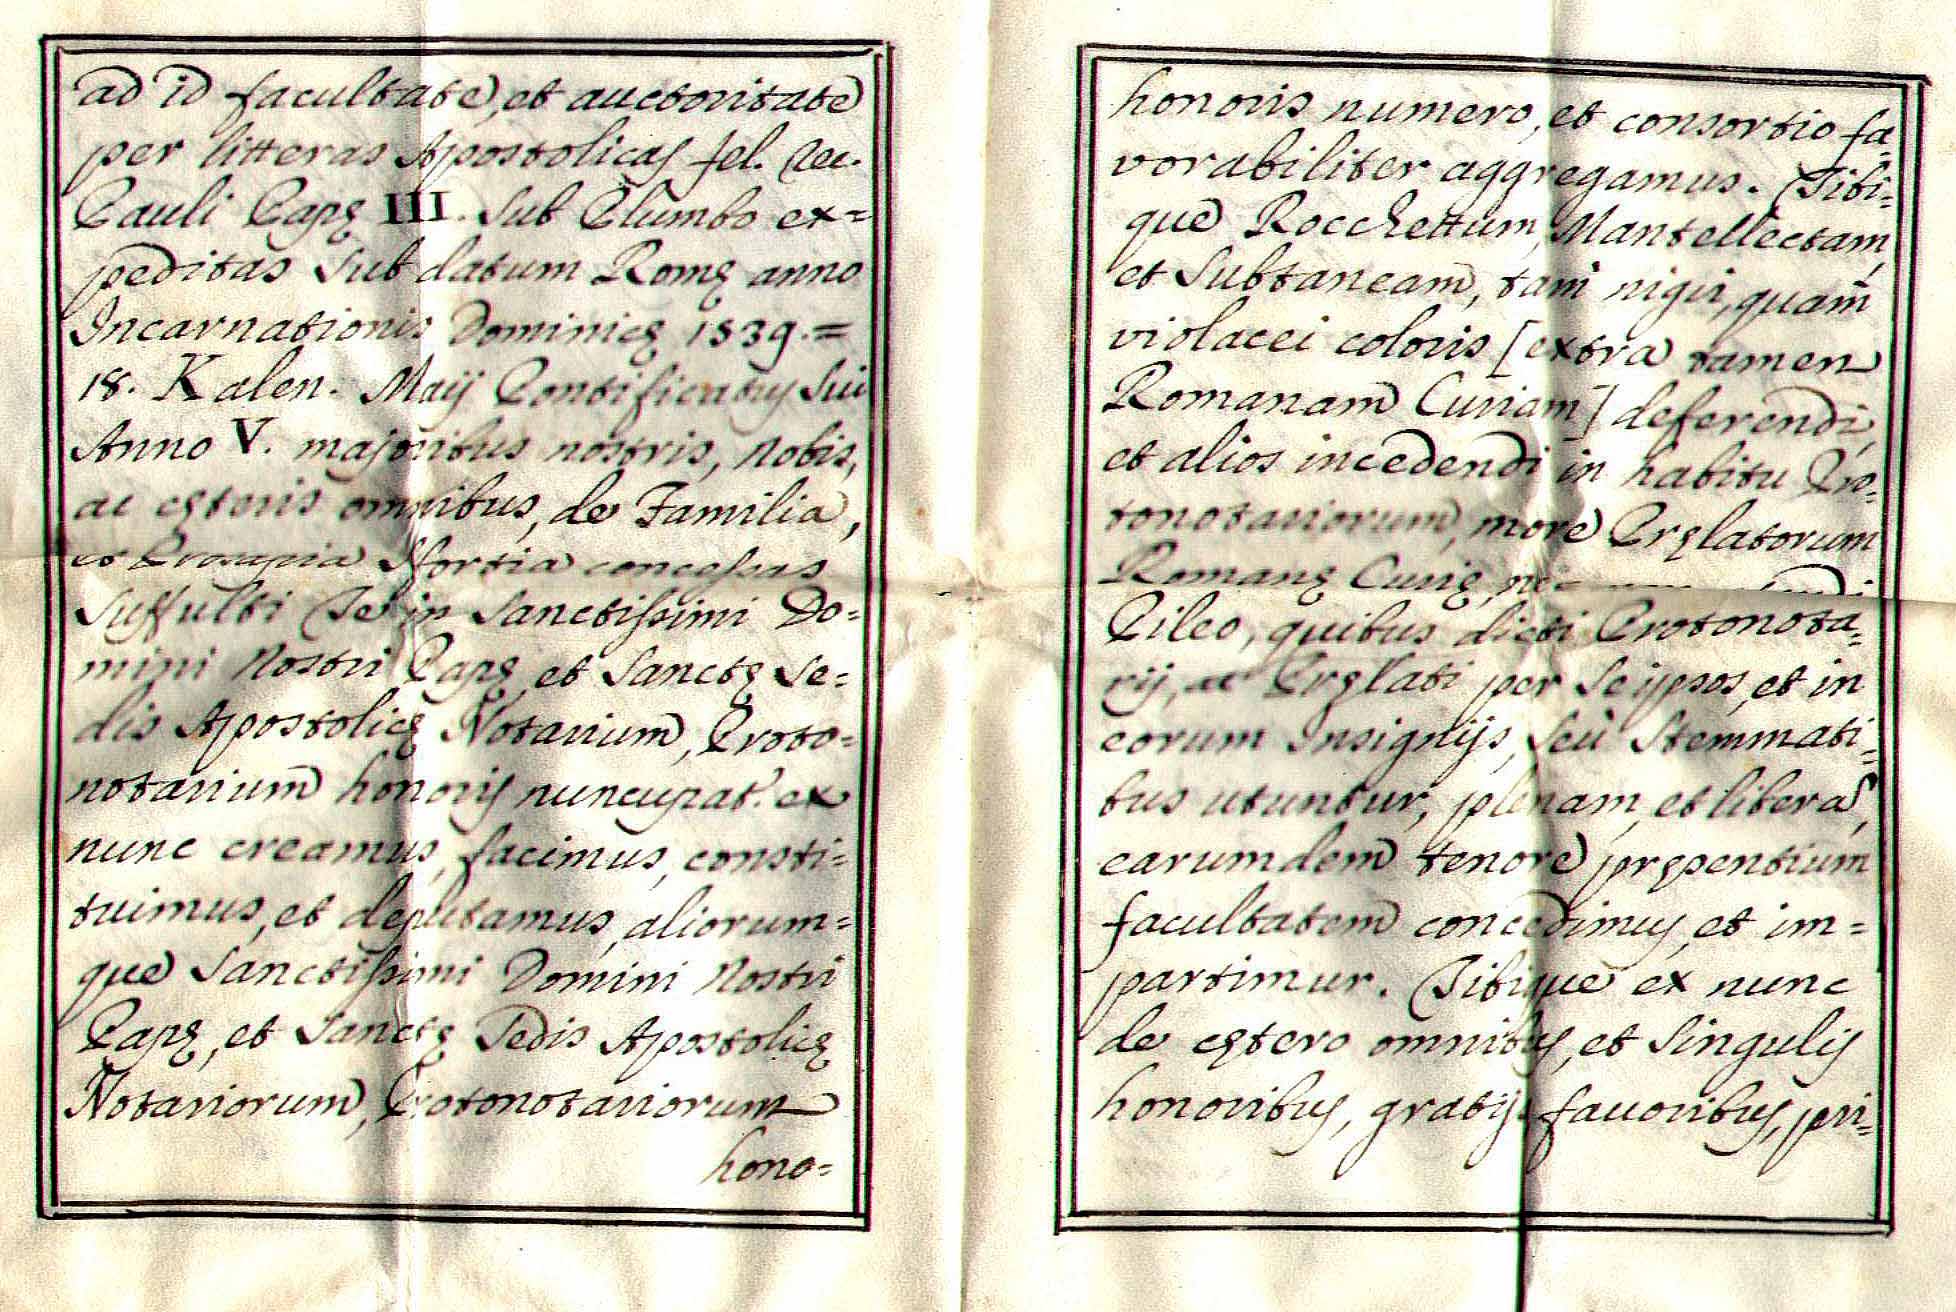 ad id facultate, et auctoritate
per litteras Apostolicas fel. rec.
Pauli Papę III. sub Plumbo ex=
peditas sub datum Romę anno
Incarnationis Dominicę 1539.=
18. Kalen. Maij Pontificatus sui
Anno V. majoribus nostris, nobis,
ac cęteris omnibus, de Familia,
et Prosapia Sfortia concessas
suffulti Te in Sanctissimi Do=
mini Nostri Papę, et Sanctę Se=
dis Apostolicę Notarium, Proto=
notarium honoris nuncupat. ex
nunc creamus, facimus, consti=
tuimus, et deputamus, aliorum=
que Sanctissimi Domini Nostri
Papę, et Sanctę Sedis Apostolicę
Notariorum, Protonotariorum
hono=
honoris numero, et consortio fa=
vorabiliter aggregamus. Tibi=
que Rocchettum, Mantellectam,
et Subtaneam, tam nigri, quam
violacei coloris [extra tamen
Romanam Curiam] deferendi,
et alios incedendi in habitu Pro=
tonotariorum, more Pręlatorum
Romanę Curię,
Pileo, quibus dicti Protonota=
rij, ac Pręlati per se ipsos, et in
eorum Insignijs, seù Stemmati=
bus utuntur, plenam, et libera,
earumdem tenore pręsentium
facultatem concedimus, et im=
partimur. Tibique ex nunc
de cętero omnibus, et singulis
honoribus, gratijs, favoribus, pri=